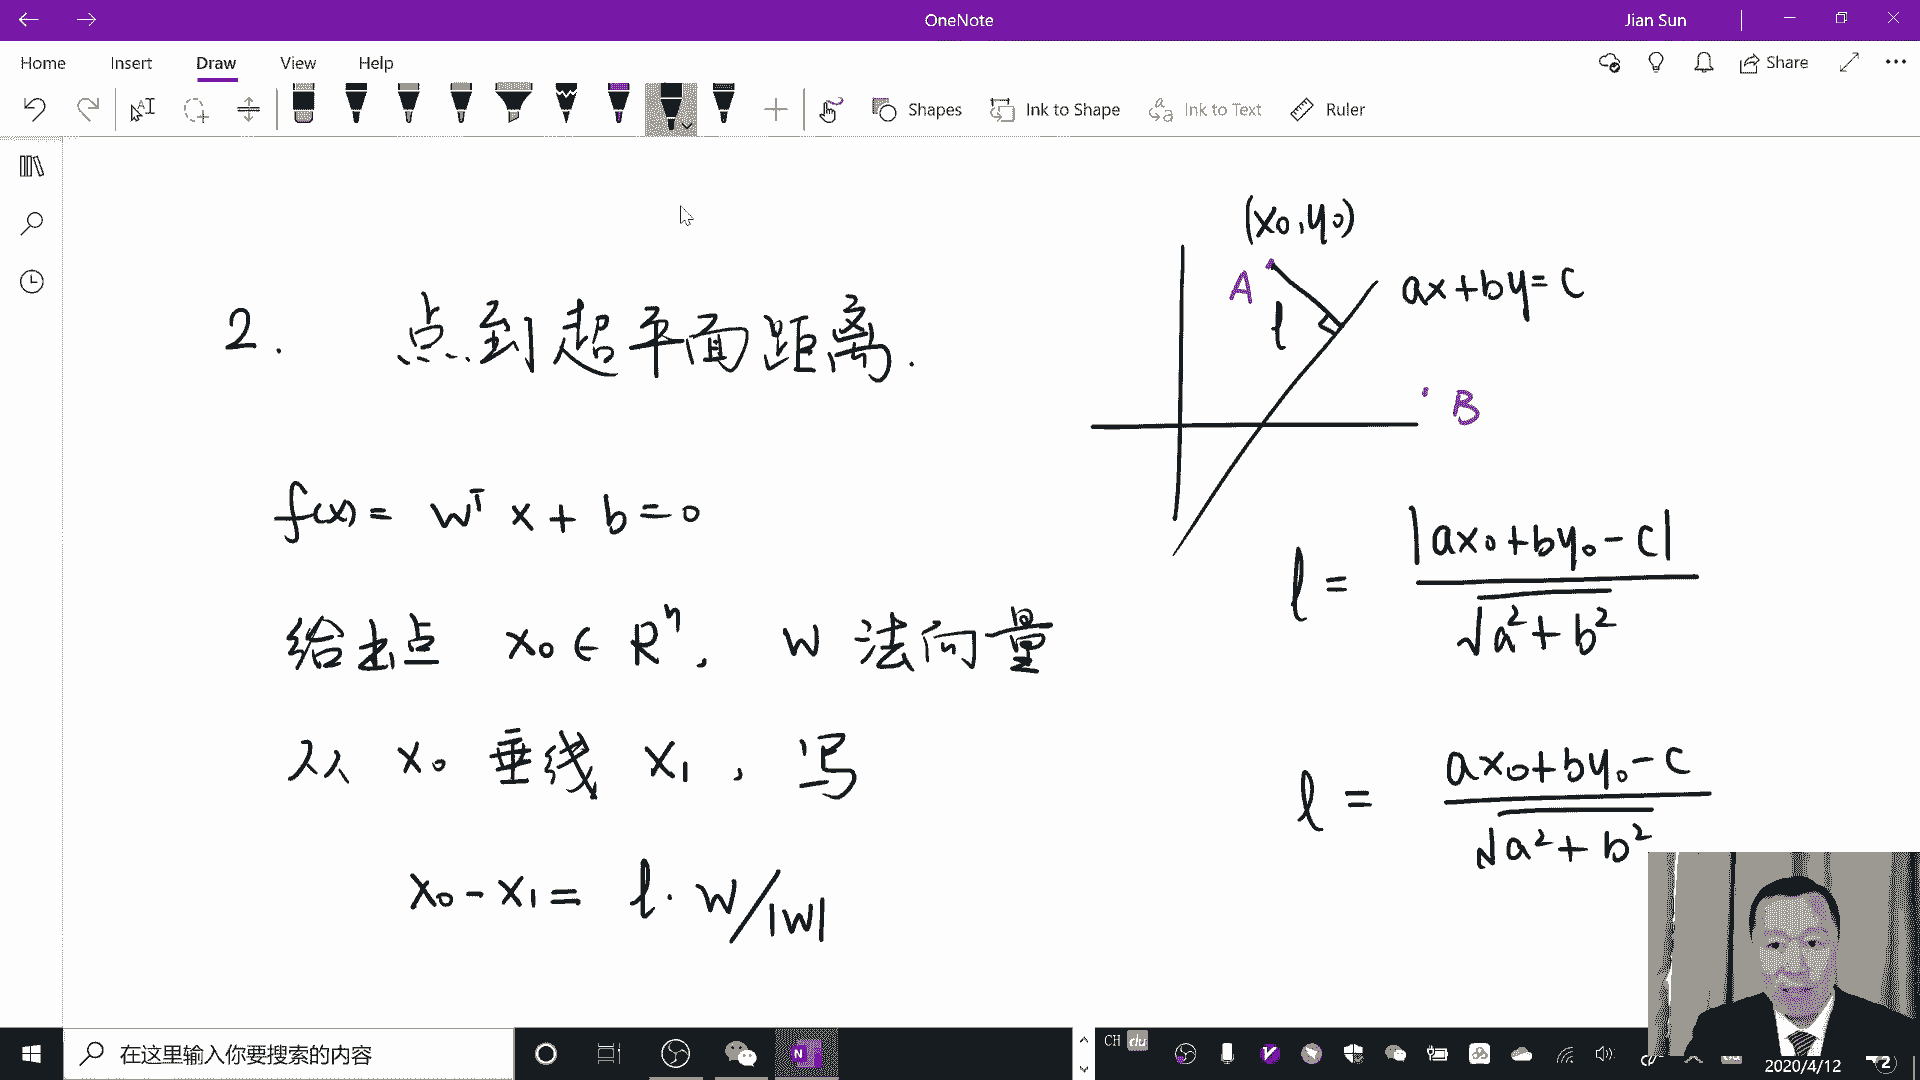 OneNote
Jian Sun
Home Insert Draw View Help
Share
Shapes Ink to Shape Ink to Text Ruler
2. 点到超平面距离.
f(x) = wᵀ x + b = 0
给出点 x₀ ∈ Rⁿ, w 法向量
从 x₀ 垂线 x₁, 写
x₀ - x₁ = l · w/|w|
(x₀, y₀)
A
l
ax + by = c
B
l = |ax₀ + by₀ - c| / √a² + b²
l = ax₀ + by₀ - c / √a² + b²
在这里输入你要搜索的内容
N
CH du
2020/4/12
2